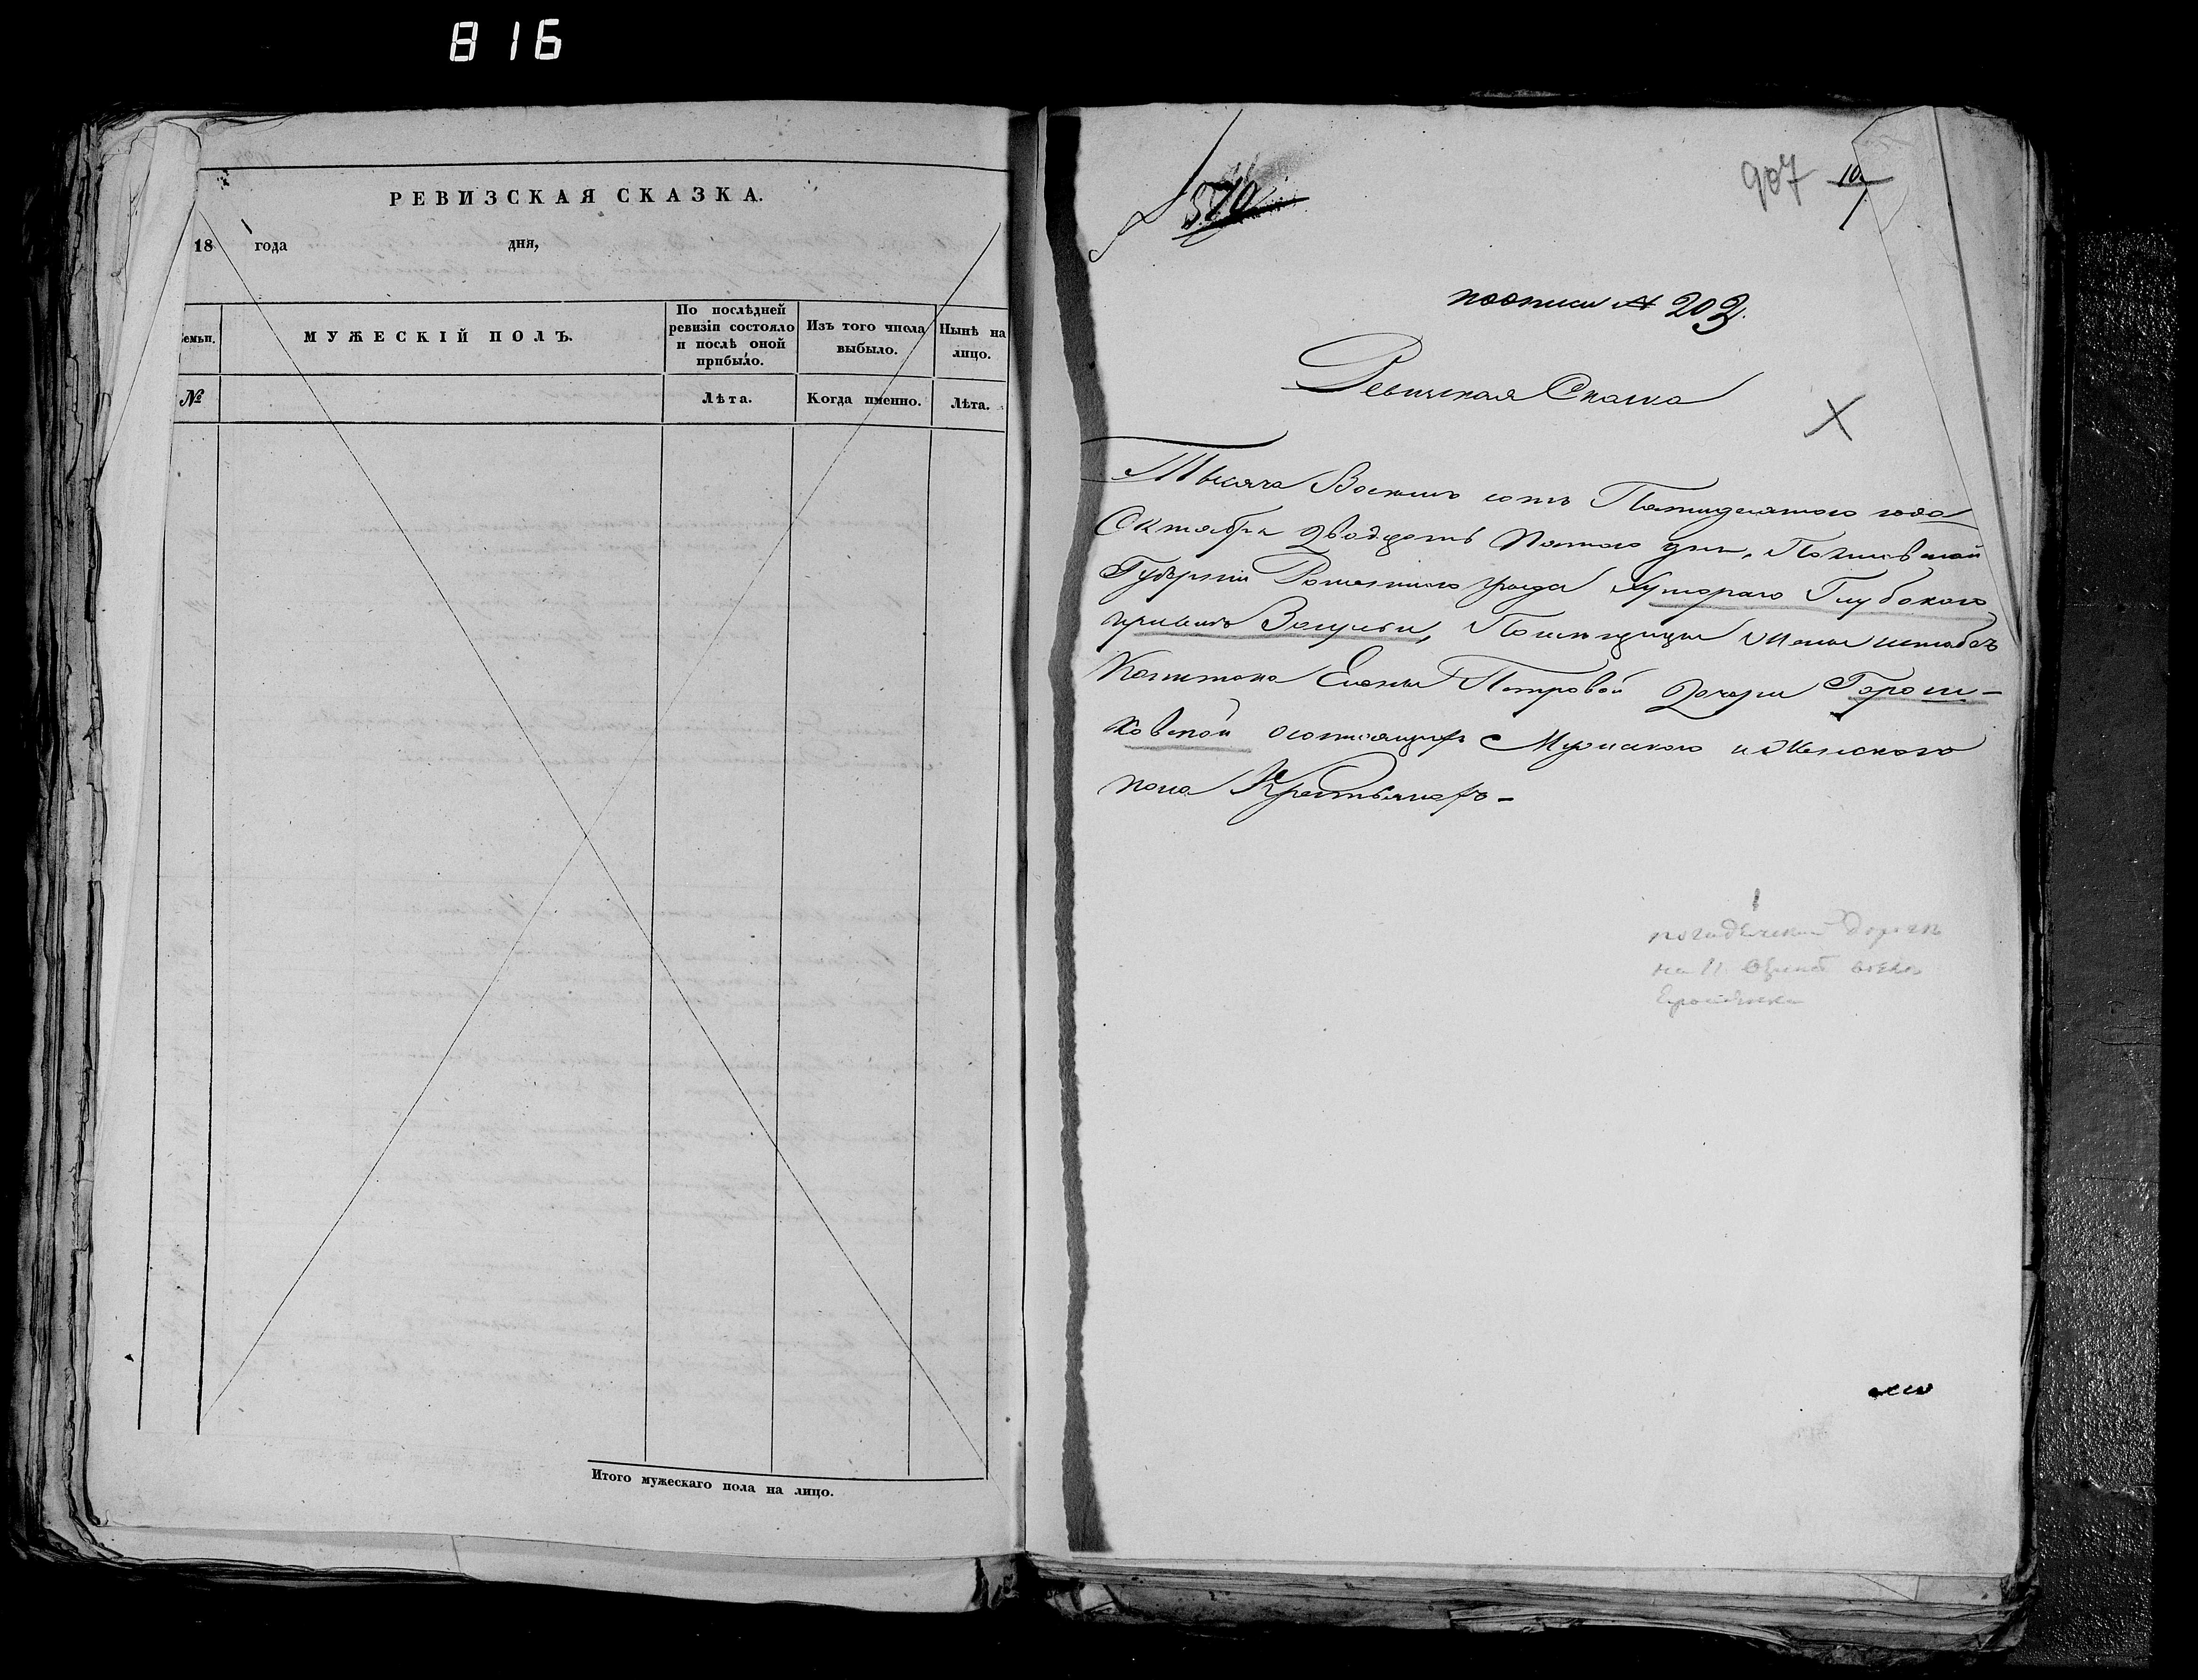 816
РЕВИЗСКАЯ СКАЗКА.
18 года дня,
емьи.
МУЖЕСКІЙ ПОЛЪ.
По послѣдней ревизіи состояло и послѣ оной прибыло.
Изъ того числа выбыло.
Нынѣ на лицо.
№
Лѣта.
Когда именно.
Лѣта.
Итого мужескаго пола на лицо.
570
907
поописи № 203
Ревизская Сказка
Тысяча Восемь сотъ Пятидесятого года
Октября двадцать Пятого дня, Полтавской
Губерніи Роменского уезда Хутораго Глубокого
Помещицы жены штабсъ
Капитана Елены Петровой Дочери Горош-
ковской состоящихъ Мужеского и Женского
пола Крестьянахъ -